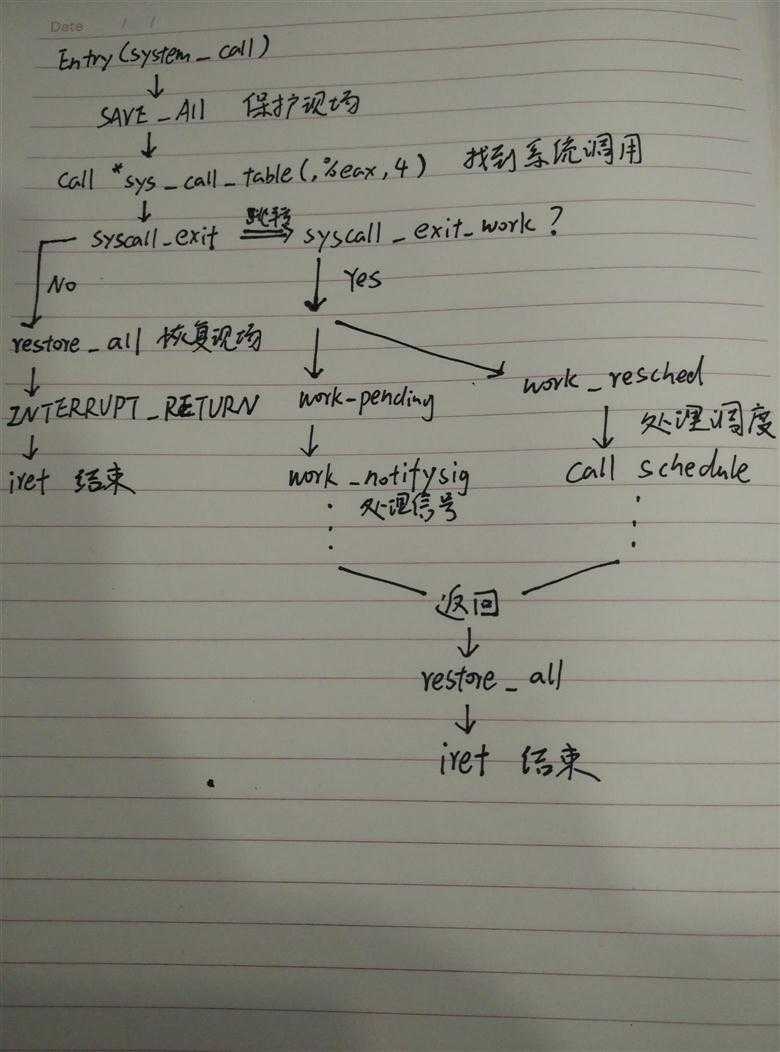 Date / /
Entry(system_call)
SAVE_All 保护现场
call *sys_call_table(,%eax,4) 找到系统调用
跳转
syscall_exit syscall_exit_work?
No Yes
restore_all 恢复现场
work_resched
INTERRUPT_RETURN work-pending
处理调度
iret 结束 work_notifysig call schedule
处理信号
返回
restore_all
iret 结束